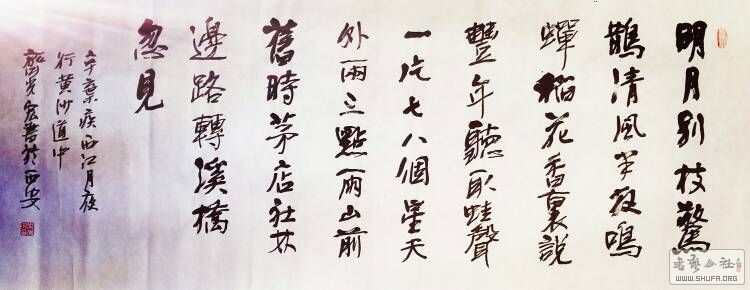 明月别枝驚
鵲清風半夜鳴
蟬稻花香裏説
豐年聽取蛙聲
一片七八個星天
外兩三點雨山前
舊時茅店社林
邊路轉溪橋
忽見
辛棄疾西江月夜
行黄沙道中
書於西安
书艺公社
WWW.SHUFA.ORG